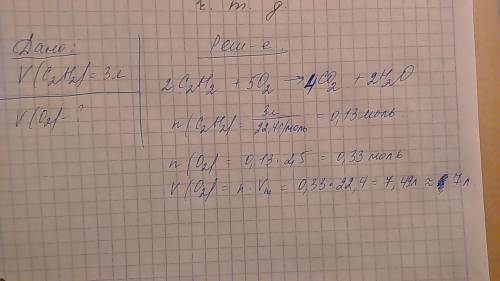 ч. т. д
Дано:
V(C₂H₂) = 3л
V(O₂) - ?
Реш-е.
2C₂H₂ + 5O₂ → 4CO₂ + 2H₂O
n(C₂H₂) = 3л / 22,4 л/моль = 0,13 моль
n(O₂) = 0,13 · 2,5 = 0,33 моль
V(O₂) = n · Vm = 0,33 · 22,4 = 7,49л ≈ 7л